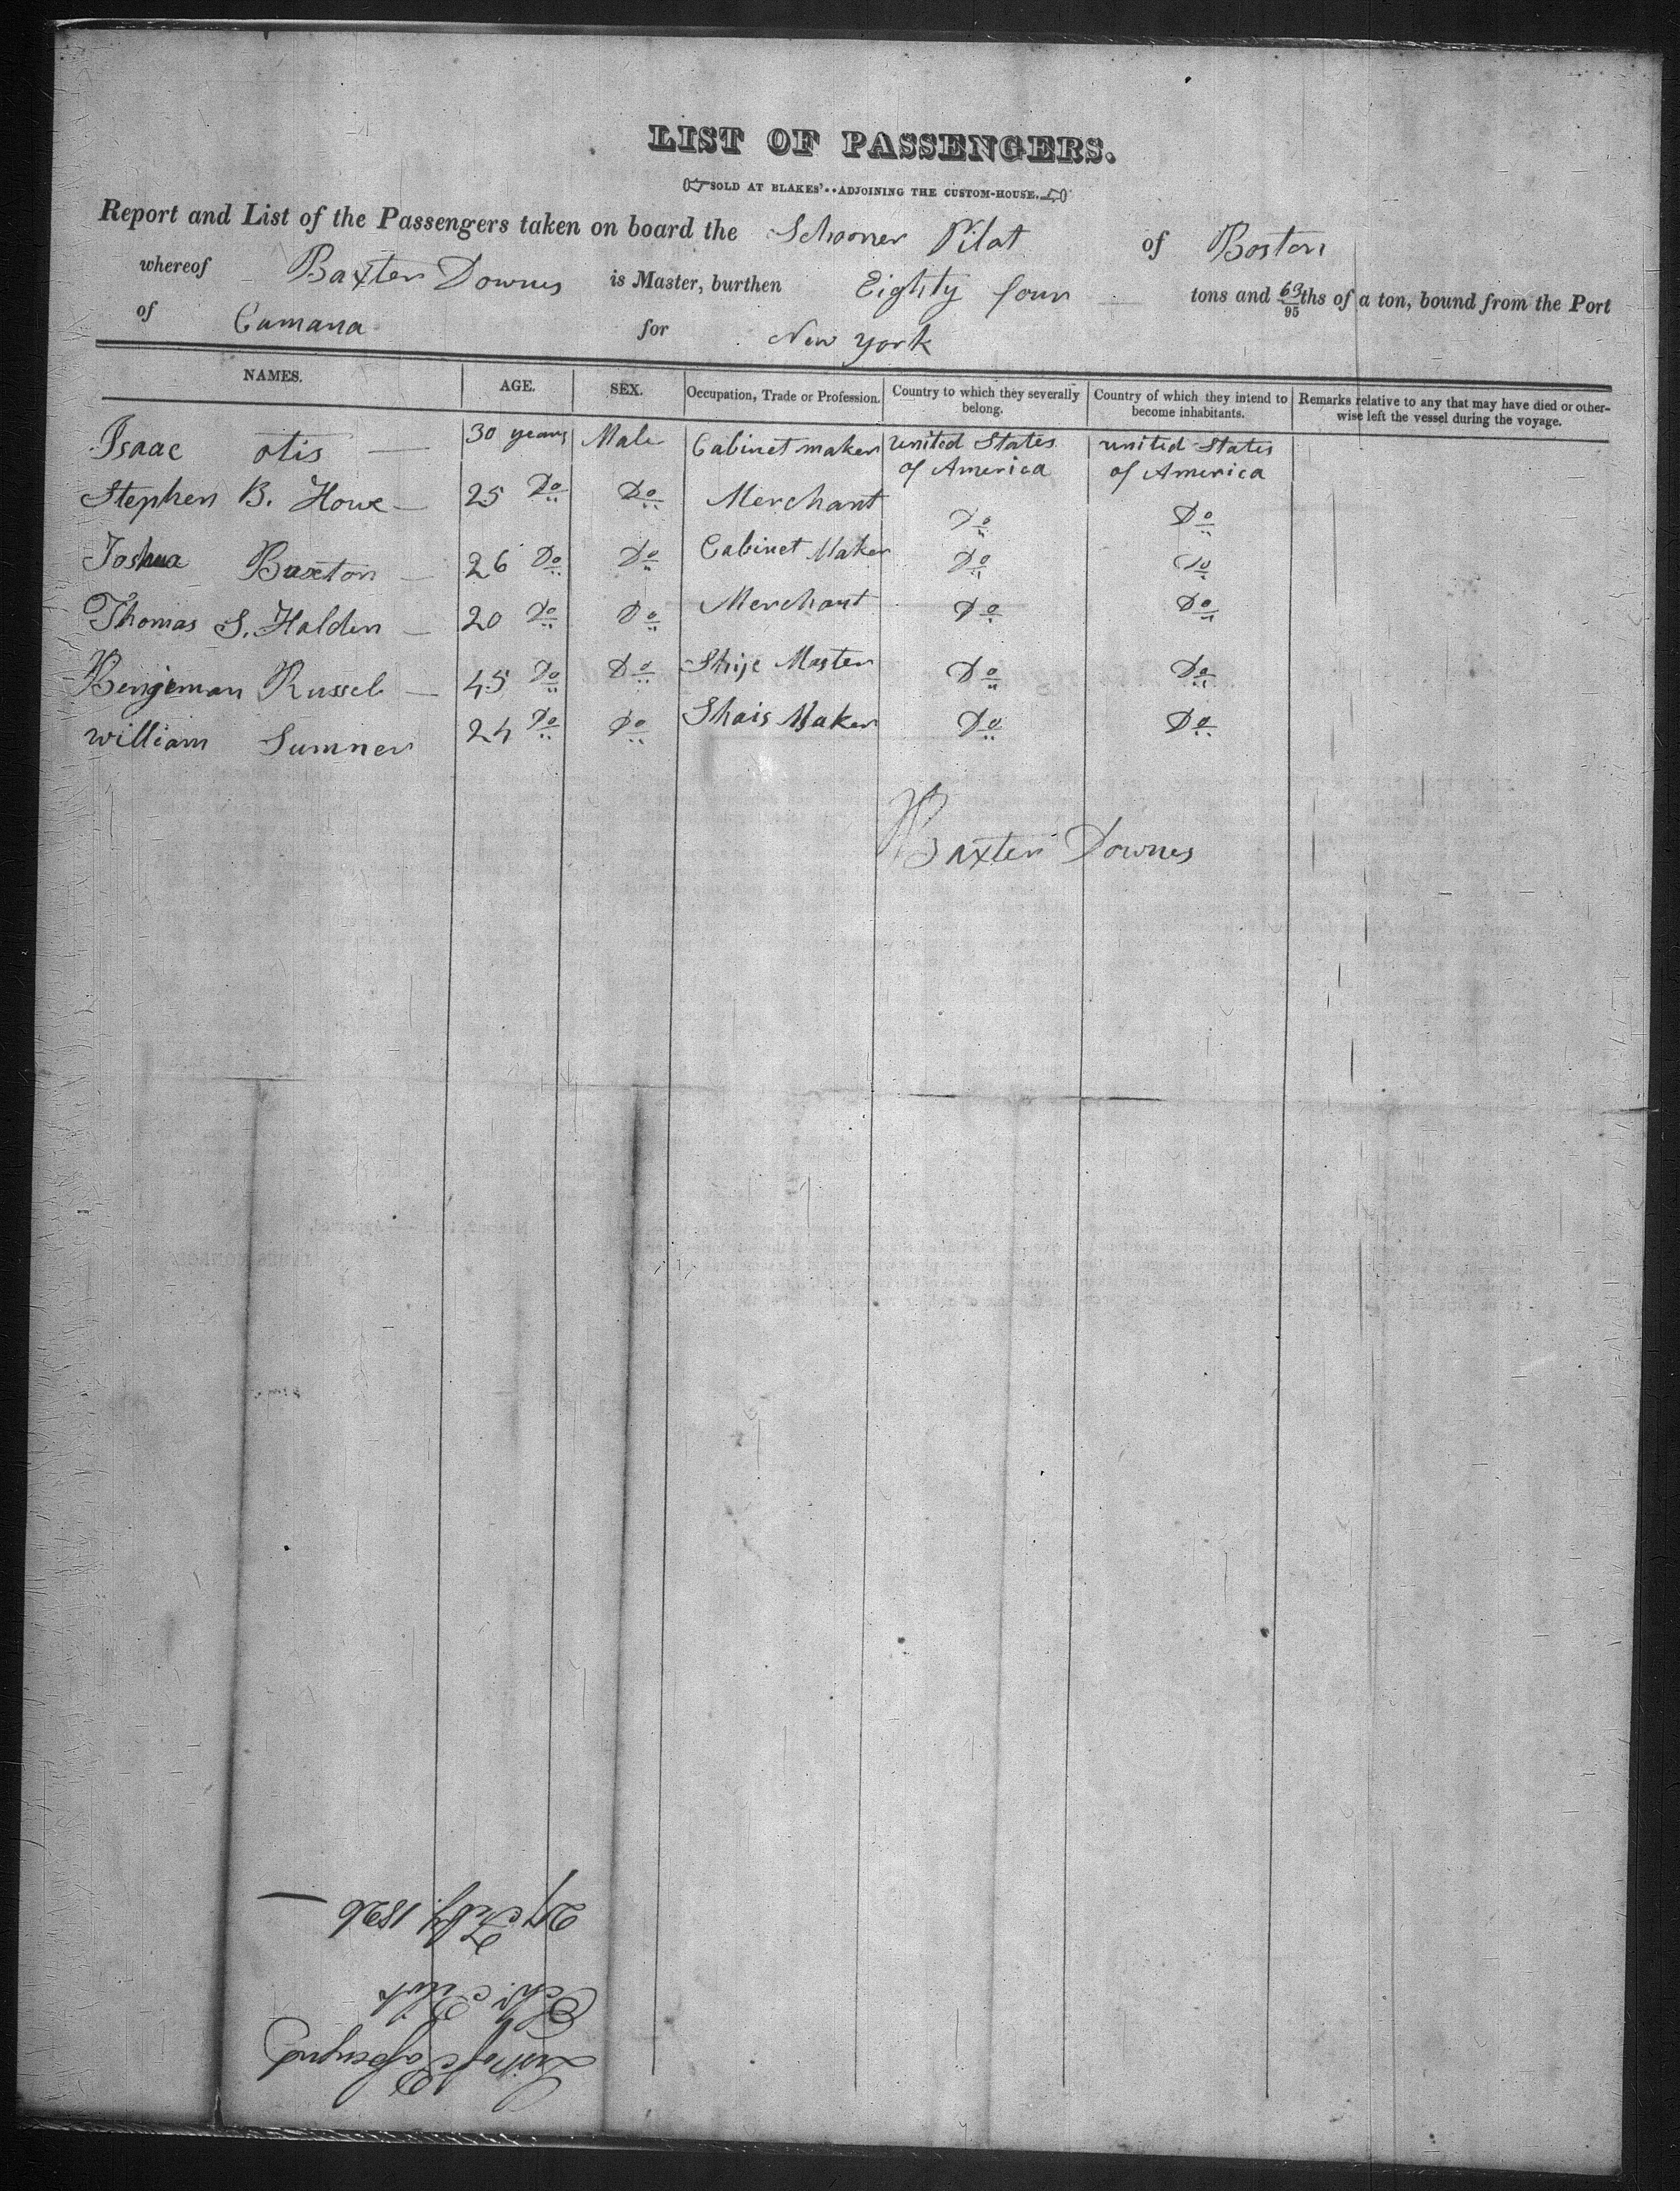 LIST OF PASSENGERS.
SOLD AT BLAKES'..ADJOINING THE CUSTOM-HOUSE.
Report and List of the Passengers taken on board the Schooner Pilot of Boston
whereof Baxter Downes is Master, burthen Eighty four tons and 63/95ths of a ton, bound from the Port
of Cumana for New York
NAMES. AGE. SEX. Occupation, Trade or Profession. Country to which they severally belong. Country of which they intend to become inhabitants. Remarks relative to any that may have died or otherwise left the vessel during the voyage.
Isaac otis — 30 years Male Cabinet maker united States of America united States of America
Stephen B. Howe — 25 Do Do Merchant Do Do
Joshua Buxton — 26 Do Do Cabinet Maker Do Do
Thomas S. Halden — 20 Do Do Merchant Do Do
Bengeman Russel — 45 Do Do Shipe Master Do Do
william Sumner 24 Do Do Shais Maker Do Do
Baxter Downes
List of Passengers
Schr Pilot
27 Feby. 1826 —